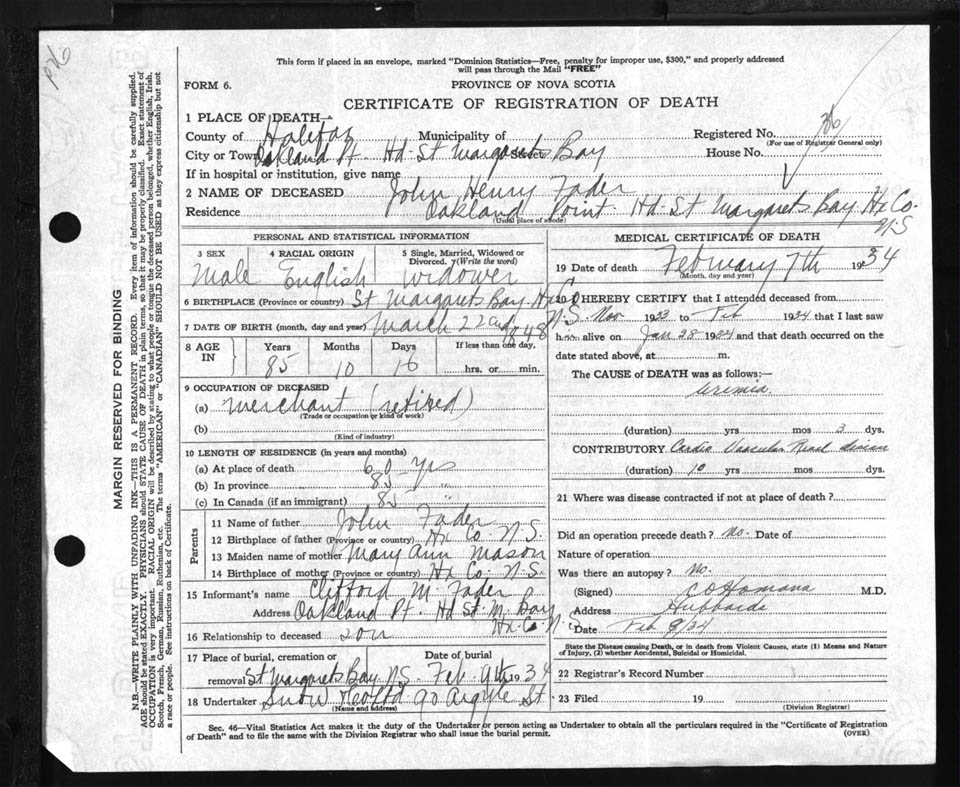 P36
This form if placed in an envelope, marked "Dominion Statistics—Free, penalty for improper use, $300," and properly addressed
will pass through the Mail "FREE"
FORM 6.
PROVINCE OF NOVA SCOTIA
CERTIFICATE OF REGISTRATION OF DEATH
1 PLACE OF DEATH—
County of Halifax Municipality of Registered No. 36
(For use of Registrar General only)
City or Town Oakland Pt. Hd. St Margarets Bay House No.
If in hospital or institution, give name
2 NAME OF DECEASED John Henry Fader
Residence Oakland Point Hd. St Margarets Bay Hx Co. N S
(Usual place of abode)
PERSONAL AND STATISTICAL INFORMATION
3 SEX Male
4 RACIAL ORIGIN English
5 Single, Married, Widowed or Divorced. (Write the word) widower
6 BIRTHPLACE (Province or country) St Margarets Bay Hx Co N.S.
7 DATE OF BIRTH (month, day and year) March 22nd 1848
8 AGE IN Years 85 Months 10 Days 16 If less than one day, hrs. or min.
9 OCCUPATION OF DECEASED
(a) merchant (retired)
(Trade or occupation or kind of work)
(b)
(Kind of industry)
10 LENGTH OF RESIDENCE (in years and months)
(a) At place of death 60 yrs
(b) In province 85 "
(c) In Canada (if an immigrant) 85 "
Parents
11 Name of father John Fader
12 Birthplace of father (Province or country) Hx Co. N.S.
13 Maiden name of mother Mary Ann Mason
14 Birthplace of mother (Province or country) Hx Co. N.S.
15 Informant's name Clifford M. Fader
Address Oakland Pt. Hd St. M. Bay Hx Co N.S
16 Relationship to deceased son
17 Place of burial, cremation or removal St Margarets Bay N.S. Date of burial Feb. 9th 1934
18 Undertaker Snow & Co Ltd 90 Argyle St.
(Name and address)
MEDICAL CERTIFICATE OF DEATH
19 Date of death February 7th 1934
(Month, day and year)
20 I HEREBY CERTIFY that I attended deceased from
Nov 1933 to Feb 1934 that I last saw
him alive on Jan 28 1934 and that death occurred on the
date stated above, at m.
The CAUSE of DEATH was as follows:—
Uremia
(duration) yrs mos 3 dys.
CONTRIBUTORY Cardio Vascular Renal disease
(duration) 10 yrs mos dys.
21 Where was disease contracted if not at place of death?
Did an operation precede death? No. Date of
Nature of operation
Was there an autopsy? No.
(Signed) M.D.
Address Hubbards
Date Feb 8/34
State the Disease causing Death, or in death from Violent Causes, state (1) Means and Nature
of Injury, (2) whether Accidental, Suicidal or Homicidal.
22 Registrar's Record Number
23 Filed 19
(Division Registrar)
Sec. 46—Vital Statistics Act makes it the duty of the Undertaker or person acting as Undertaker to obtain all the particulars required in the "Certificate of Registration
of Death" and to file the same with the Division Registrar who shall issue the burial permit.
(OVER)
MARGIN RESERVED FOR BINDING
N.B.—WRITE PLAINLY WITH UNFADING INK—THIS IS A PERMANENT RECORD. Every item of information should be carefully supplied.
AGE should be stated EXACTLY. PHYSICIANS should STATE CAUSE OF DEATH in plain terms, so that it may be properly classified. Exact statement of
OCCUPATION is very important. RACIAL ORIGIN will be described by stating to what people or tongue the deceased person belonged, whether English, Irish,
Scotch, French, German, Russian, Ruthenian, etc. The terms "AMERICAN" or "CANADIAN" SHOULD NOT BE USED as they express citizenship but not
a race or people. See instructions on back of Certificate.